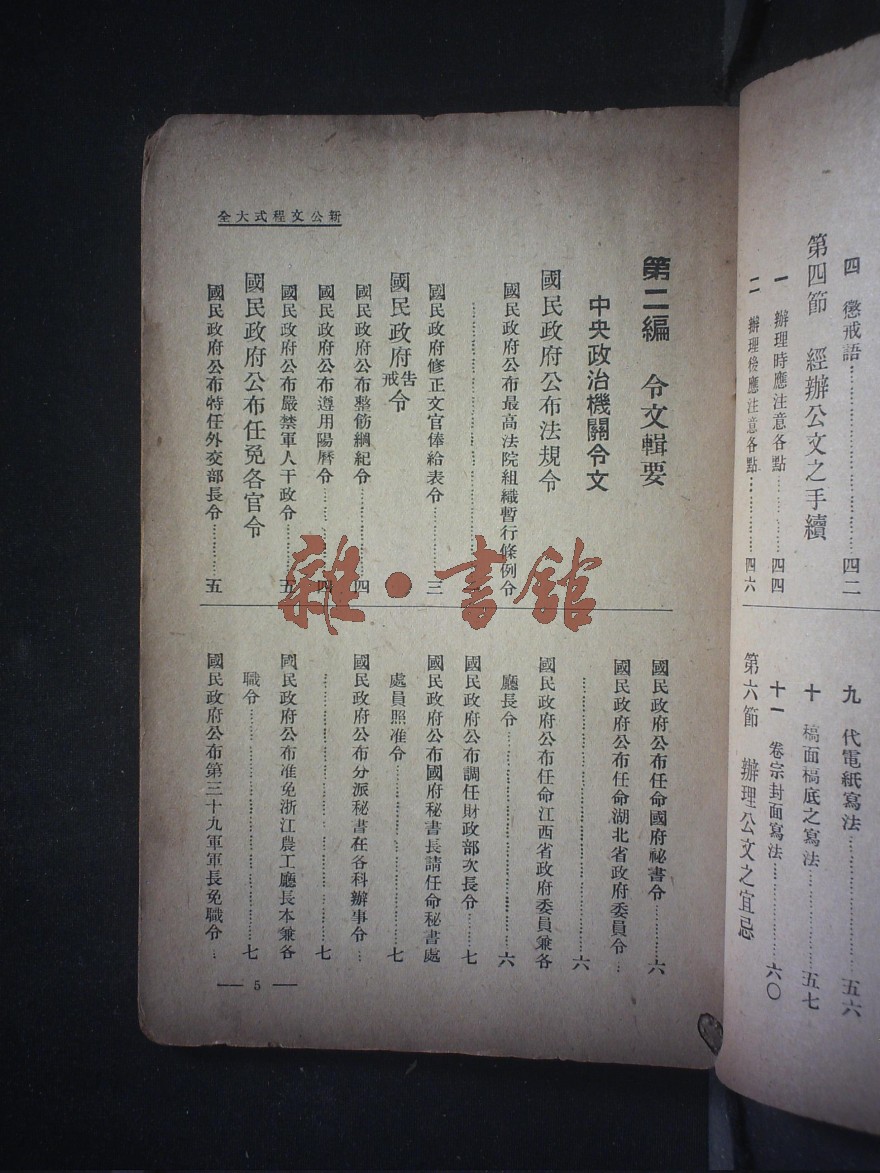 四 懲戒語……四二
第四節 經辦公文之手續
一 辦理時應注意各點……四四
二 辦理後應注意各點……四六
九 代電紙寫法……五六
十 稿面稿底之寫法……五七
十一 卷宗封面寫法……六〇
第六節 辦理公文之宜忌
新公文程式大全
第二編 令文輯要
中央政治機關令文
國民政府公布法規令
國民政府公布最高法院組織暫行條例令
國民政府修正文官俸給表令……三
國民政府告戒令
國民政府公布整飭綱紀令……四
國民政府公布遵用陽曆令……四
國民政府公布嚴禁軍人干政令……五
國民政府公布任免各官令
國民政府公布特任外交部長令……五
國民政府公布任命國府祕書令……六
國民政府公布任命湖北省政府委員令…
……六
國民政府公布任命江西省政府委員兼各
廳長令……六
國民政府公布調任財政部次長令……七
國民政府公布國府秘書長請任命秘書處
處員照准令……七
國民政府公布分派秘書在各科辦事令…
……七
國民政府公布准免浙江農工廳長本兼各
職令……七
國民政府公布第三十九軍軍長免職令…
5
雜·書館